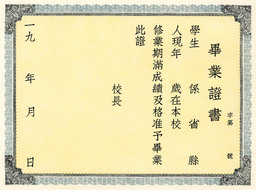 畢業證書
字第 號
學生 係 省 縣
人現年 歲在本校
修業期滿成績及格准予畢業
此證
校長
一九 年 月 日